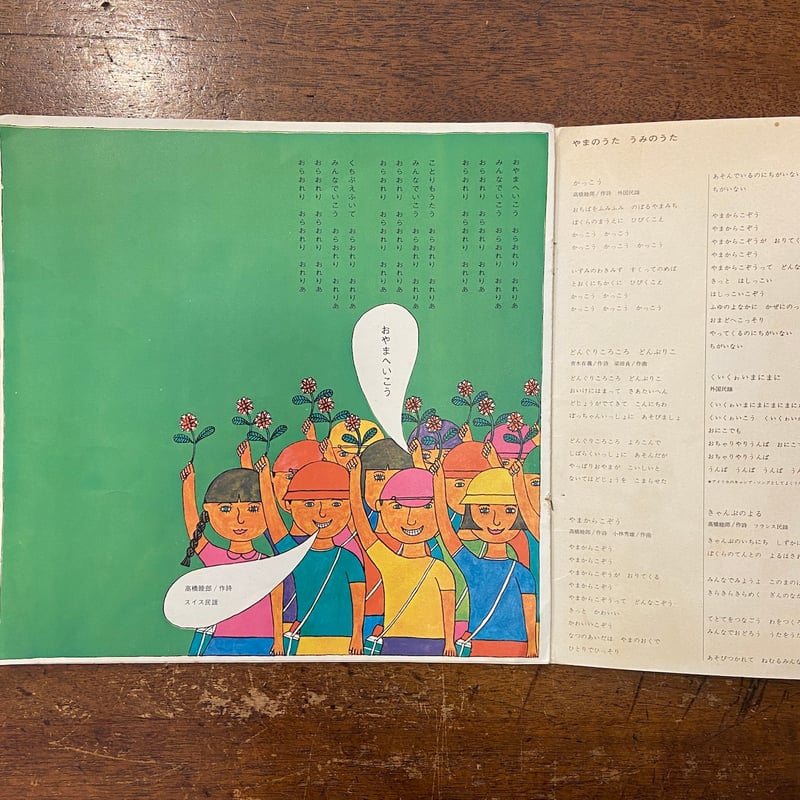 おやまへいこう おらおれり おれりあ
みんなでいこう おらおれり おれりあ
おらおれり おらおれり おれりあ
おらおれり おらおれり おれりあ
ことりもうたう おらおれり おれりあ
みんなでいこう おらおれり おれりあ
おらおれり おらおれり おれりあ
おらおれり おらおれり おれりあ
くちぶえふいて おらおれり おれりあ
みんなでいこう おらおれり おれりあ
おらおれり おらおれり おれりあ
おらおれり おらおれり おれりあ
おやまへいこう
高橋睦郎/作詩
スイス民謡
やまのうた うみのうた
かっこう
高橋睦郎/作詩 外国民謡
おちばをふみふみ のぼるやまみち
ぼくらのまうえに ひびくこえ
かっこう かっこう
かっこう かっこう かっこう
いずみのわきみず すくってのめば
とおくにちかくに ひびくこえ
かっこう かっこう
かっこう かっこう かっこう
どんぐりころころ どんぶりこ
青木存義/作詩 梁田貞/作曲
どんぐりころころ どんぶりこ
おいけにはまって さあたいへん
どじょうがでてきて こんにちわ
ぼっちゃんいっしょに あそびましょ
どんぐりころころ よろこんで
しばらくいっしょに あそんだが
やっぱりおやまが こいしいと
ないてはどじょうを こまらせた
やまからこぞう
高橋睦郎/作詩 小林秀雄/作曲
やまからこぞう
やまからこぞう
やまからこぞうが おりてくる
やまからこぞう
やまからこぞうって どんなこぞう
きっと かわいい
かわいいこぞう
なつのあいだは やまのおくで
ひとりでひっそり
あそんでいるのにちがいない
ちがいない
やまからこぞう
やまからこぞう
やまからこぞうが おりてく
やまからこぞう
やまからこぞうって どんな
きっと はしっこい
はしっこいこぞう
ふゆのよなかに かぜにのっ
おまどへこっそり
やってくるのにちがいない
ちがいない
くいくゎいまにまに
外国民謡
くいくゎいまにまにまにまに
くいくゎいこう くいくゎい
おにこでも
おちゃりやりうんぱ おにこ
おちゃりやりうんぱ
うんぱ うんぱ うんぱ
きゃんぷのよる
高橋睦郎/作詩 フランス民謡
きゃんぷのいちにち しずか
ぼくらのてんとの よるはさ
みんなでみようよ このまの
きらきらきらめく ぎんのな
てとてをつなごう わをつく
みんなでおどろう うたをう
あそびつかれて ねむるみん